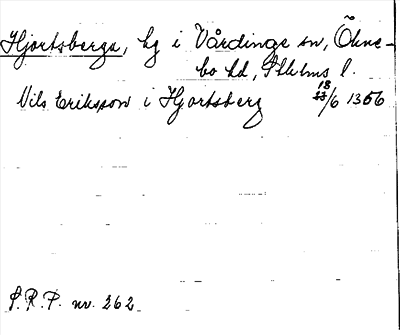 Hjortsberga, hg i Vårdinge sn, Ökne-
bo hd, Sthlms l.
Nils Eriksson i Hjortsberg 18/6 1356
S.R.P. nr. 262